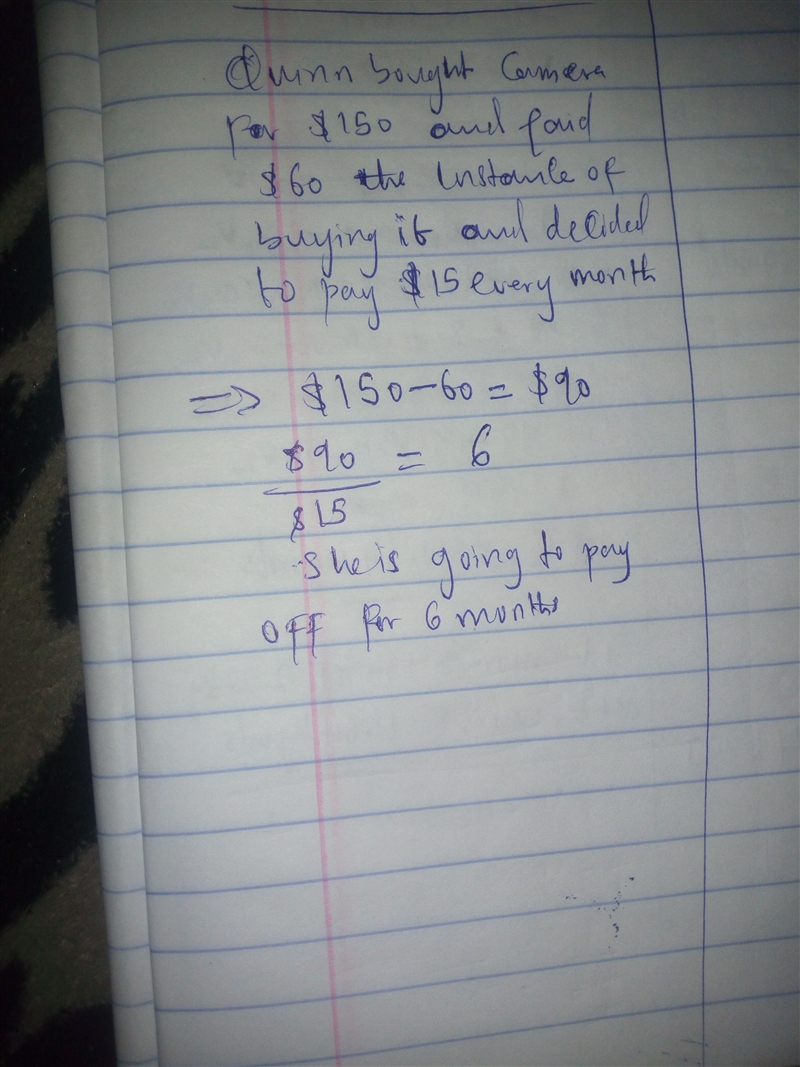 Quinn bought Camera
For $150 and paid
$60 the instance of
buying it and decided
to pay $15 every month
⇒ $150-60 = $90
$90 = 6
$15
She is going to pay
off for 6 months